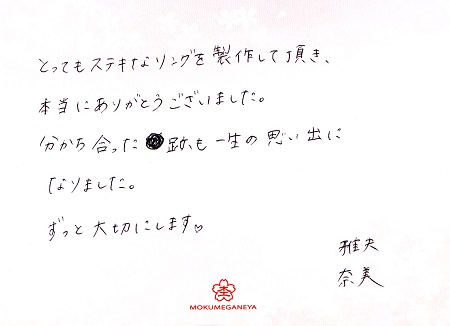 とってもステキなリングを製作して頂き、
本当にありがとうございました。
分かち合った 跡も一生の思い出に
なりました。
ずっと大切にします♡
雅央
奈美
MOKUMEGANEYA